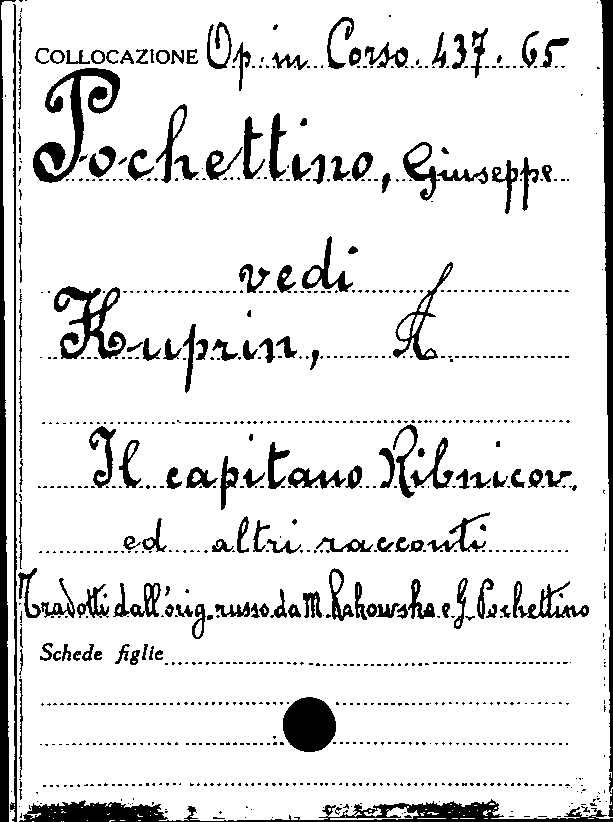 COLLOCAZIONE Op. in Corso. 437. 65
Pochettino, Giuseppe
vedi
Kuprin, A.
Il capitano Ribnicov.
ed altri racconti
Tradotti dall'orig. russo da M. Rakowska e G. Pochettino
Schede figlie